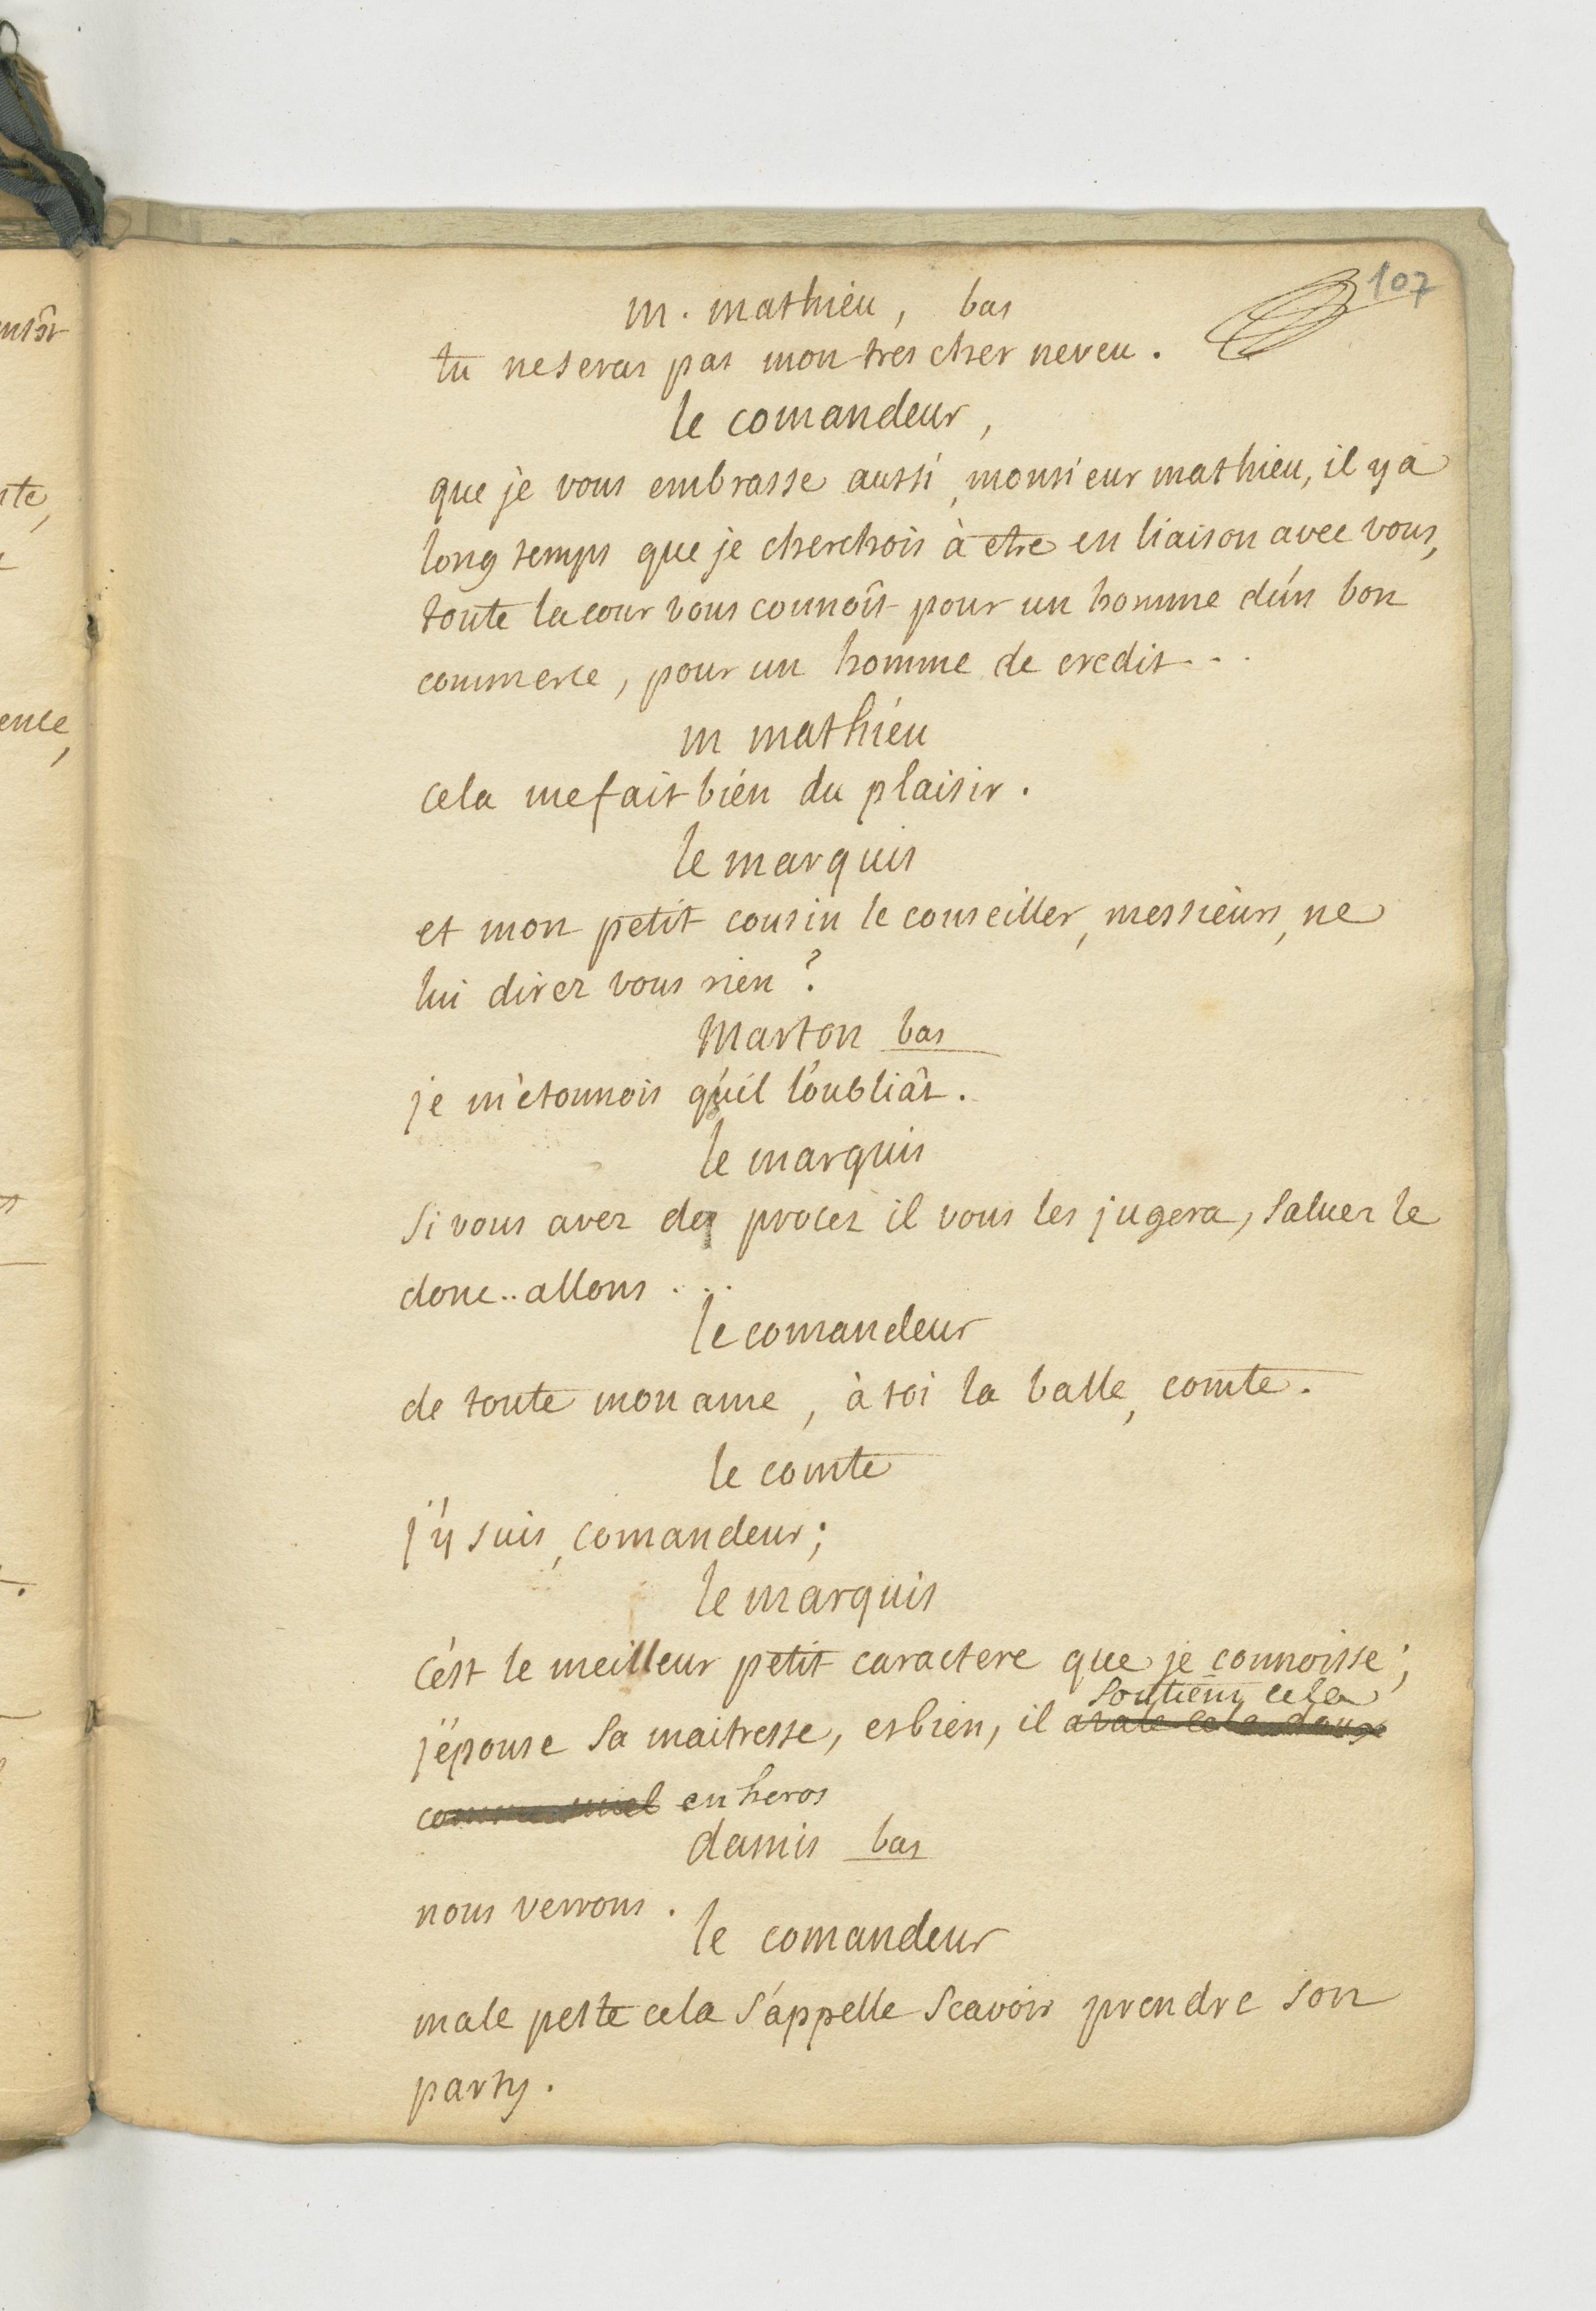 107
m. mathieu, bas
tu ne seras pas mon tres cher neveu.
le comandeur,
que je vous embrasse aussi, monsieur mathieu, il y a
long temps que je cherchois à etre en liaison avec vous,
toute la cour vous connoît pour un homme d'un bon
commerce, pour un homme de credit...
m mathieu
cela me fait bien du plaisir.
le marquis
et mon petit cousin le conseiller, messieurs, ne
lui direz vous rien?
Marton bas
je m'étonnois qu'il l'oubliât.
le marquis
si vous avez des procez il vous les jugera, saluez le
donc.. allons...
le comandeur
de toute mon ame, à toi la balle, comte.
le comte
j'y suis, comandeur;
le marquis
c'est le meilleur petit caractere que je connoisse;
soutient cela
j'épouse sa maitresse, ehbien, il avale cela doux
comme miel en heros
damis bas
nous verrons.
le comandeur
male peste cela s'appelle scavoir prendre son
party.
ntôt
nte,
ence,